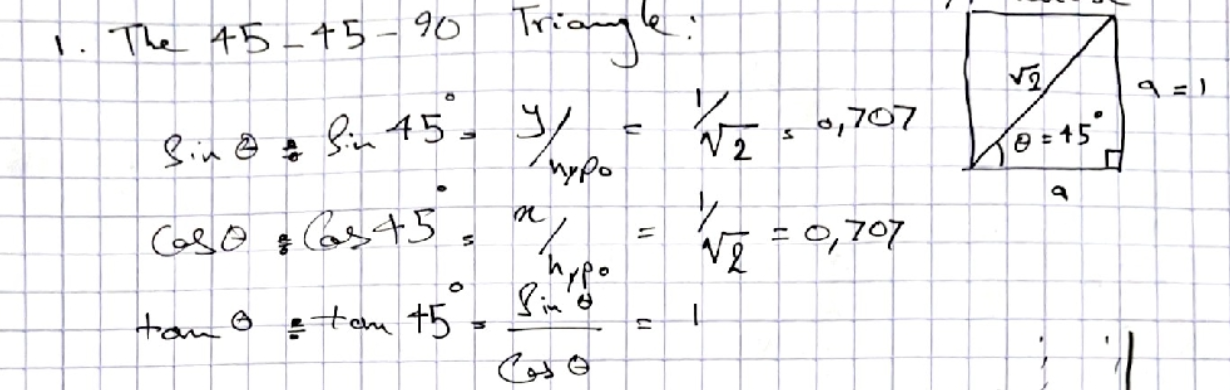 1. The 45-45-90 Triangle:
Sin θ = Sin 45° = y/hypo = 1/√2 = 0,707
Cos θ = Cos 45° = x/hypo = 1/√2 = 0,707
tan θ = tan 45° = Sin θ / Cos θ = 1
√2
a = 1
θ = 45°
a